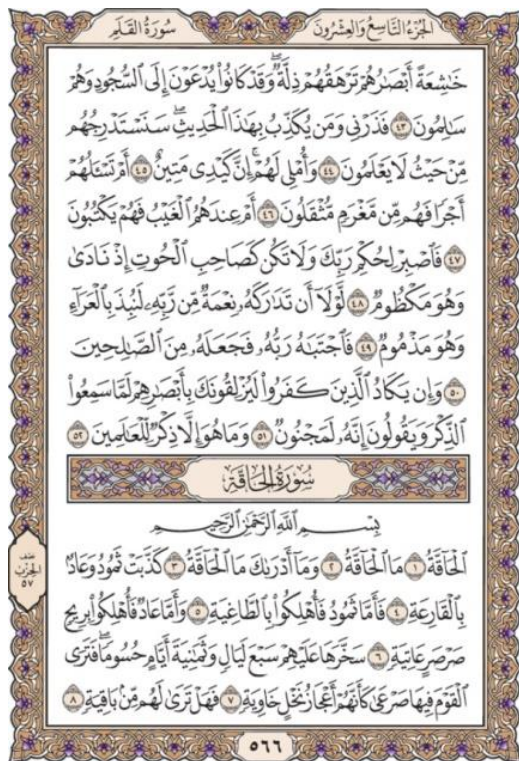 الجزء التاسع والعشرون
سورة القلم
خَٰشِعَةً أَبْصَٰرُهُمْ تَرْهَقُهُمْ ذِلَّةٌ ۖ وَقَدْ كَانُوا۟ يُدْعَوْنَ إِلَى ٱلسُّجُودِ وَهُمْ
سَٰلِمُونَ ٤٣ فَذَرْنِى وَمَن يُكَذِّبُ بِهَٰذَا ٱلْحَدِيثِ ۖ سَنَسْتَدْرِجُهُم
مِّنْ حَيْثُ لَا يَعْلَمُونَ ٤٤ وَأُمْلِى لَهُمْ ۚ إِنَّ كَيْدِى مَتِينٌ ٤٥ أَمْ تَسْـَٔلُهُمْ
أَجْرًا فَهُم مِّن مَّغْرَمٍ مُّثْقَلُونَ ٤٦ أَمْ عِندَهُمُ ٱلْغَيْبُ فَهُمْ يَكْتُبُونَ
٤٧ فَٱصْبِرْ لِحُكْمِ رَبِّكَ وَلَا تَكُن كَصَاحِبِ ٱلْحُوتِ إِذْ نَادَىٰ
وَهُوَ مَكْظُومٌ ٤٨ لَّوْلَآ أَن تَدَٰرَكَهُۥ نِعْمَةٌ مِّن رَّبِّهِۦ لَنُبِذَ بِٱلْعَرَآءِ
وَهُوَ مَذْمُومٌ ٤٩ فَٱجْتَبَٰهُ رَبُّهُۥ فَجَعَلَهُۥ مِنَ ٱلصَّٰلِحِينَ
٥٠ وَإِن يَكَادُ ٱلَّذِينَ كَفَرُوا۟ لَيُزْلِقُونَكَ بِأَبْصَٰرِهِمْ لَمَّا سَمِعُوا۟
ٱلذِّكْرَ وَيَقُولُونَ إِنَّهُۥ لَمَجْنُونٌ ٥١ وَمَا هُوَ إِلَّا ذِكْرٌ لِّلْعَٰلَمِينَ ٥٢
سورة الحاقة
بِسْمِ ٱللَّهِ ٱلرَّحْمَٰنِ ٱلرَّحِيمِ
ٱلْحَآقَّةُ ١ مَا ٱلْحَآقَّةُ ٢ وَمَآ أَدْرَىٰكَ مَا ٱلْحَآقَّةُ ٣ كَذَّبَتْ ثَمُودُ وَعَادٌۢ
بِٱلْقَارِعَةِ ٤ فَأَمَّا ثَمُودُ فَأُهْلِكُوا۟ بِٱلطَّاغِيَةِ ٥ وَأَمَّا عَادٌ فَأُهْلِكُوا۟ بِرِيحٍ
صَرْصَرٍ عَاتِيَةٍ ٦ سَخَّرَهَا عَلَيْهِمْ سَبْعَ لَيَالٍ وَثَمَٰنِيَةَ أَيَّامٍ حُسُومًا ۖ فَتَرَى
ٱلْقَوْمَ فِيهَا صَرْعَىٰ كَأَنَّهُمْ أَعْجَازُ نَخْلٍ خَاوِيَةٍ ٧ فَهَلْ تَرَىٰ لَهُم مِّنۢ بَاقِيَةٍ ٨
نصف
الحزب
٥٧
٥٦٦